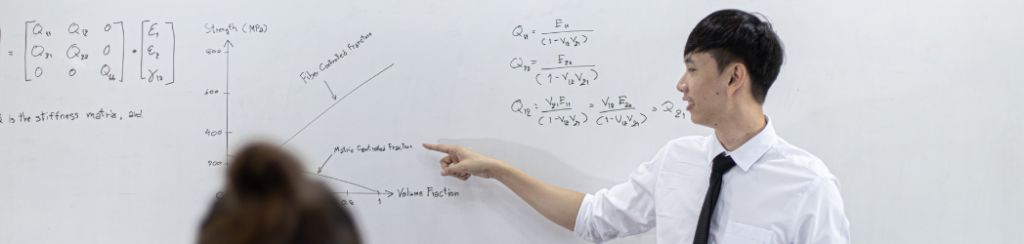 = [Q₁₁ Q₁₂ 0] • [ε₁]
[Q₂₁ Q₂₂ 0] [ε₂]
[0 0 Q₆₆] [γ₁₂]
is the stiffness matrix, and
Strength (MPa)
600
400
200
0
Fiber Controlled Fraction
Matrix Controlled Fraction
1
Volume Fraction
Q₁₁ = E₁₁ / (1-V₁₂V₂₁)
Q₂₂ = E₂₂ / (1-V₁₂V₂₁)
Q₁₂ = V₂₁E₁₁ / (1-V₁₂V₂₁) = V₁₂E₂₂ / (1-V₁₂V₂₁) = Q₂₁